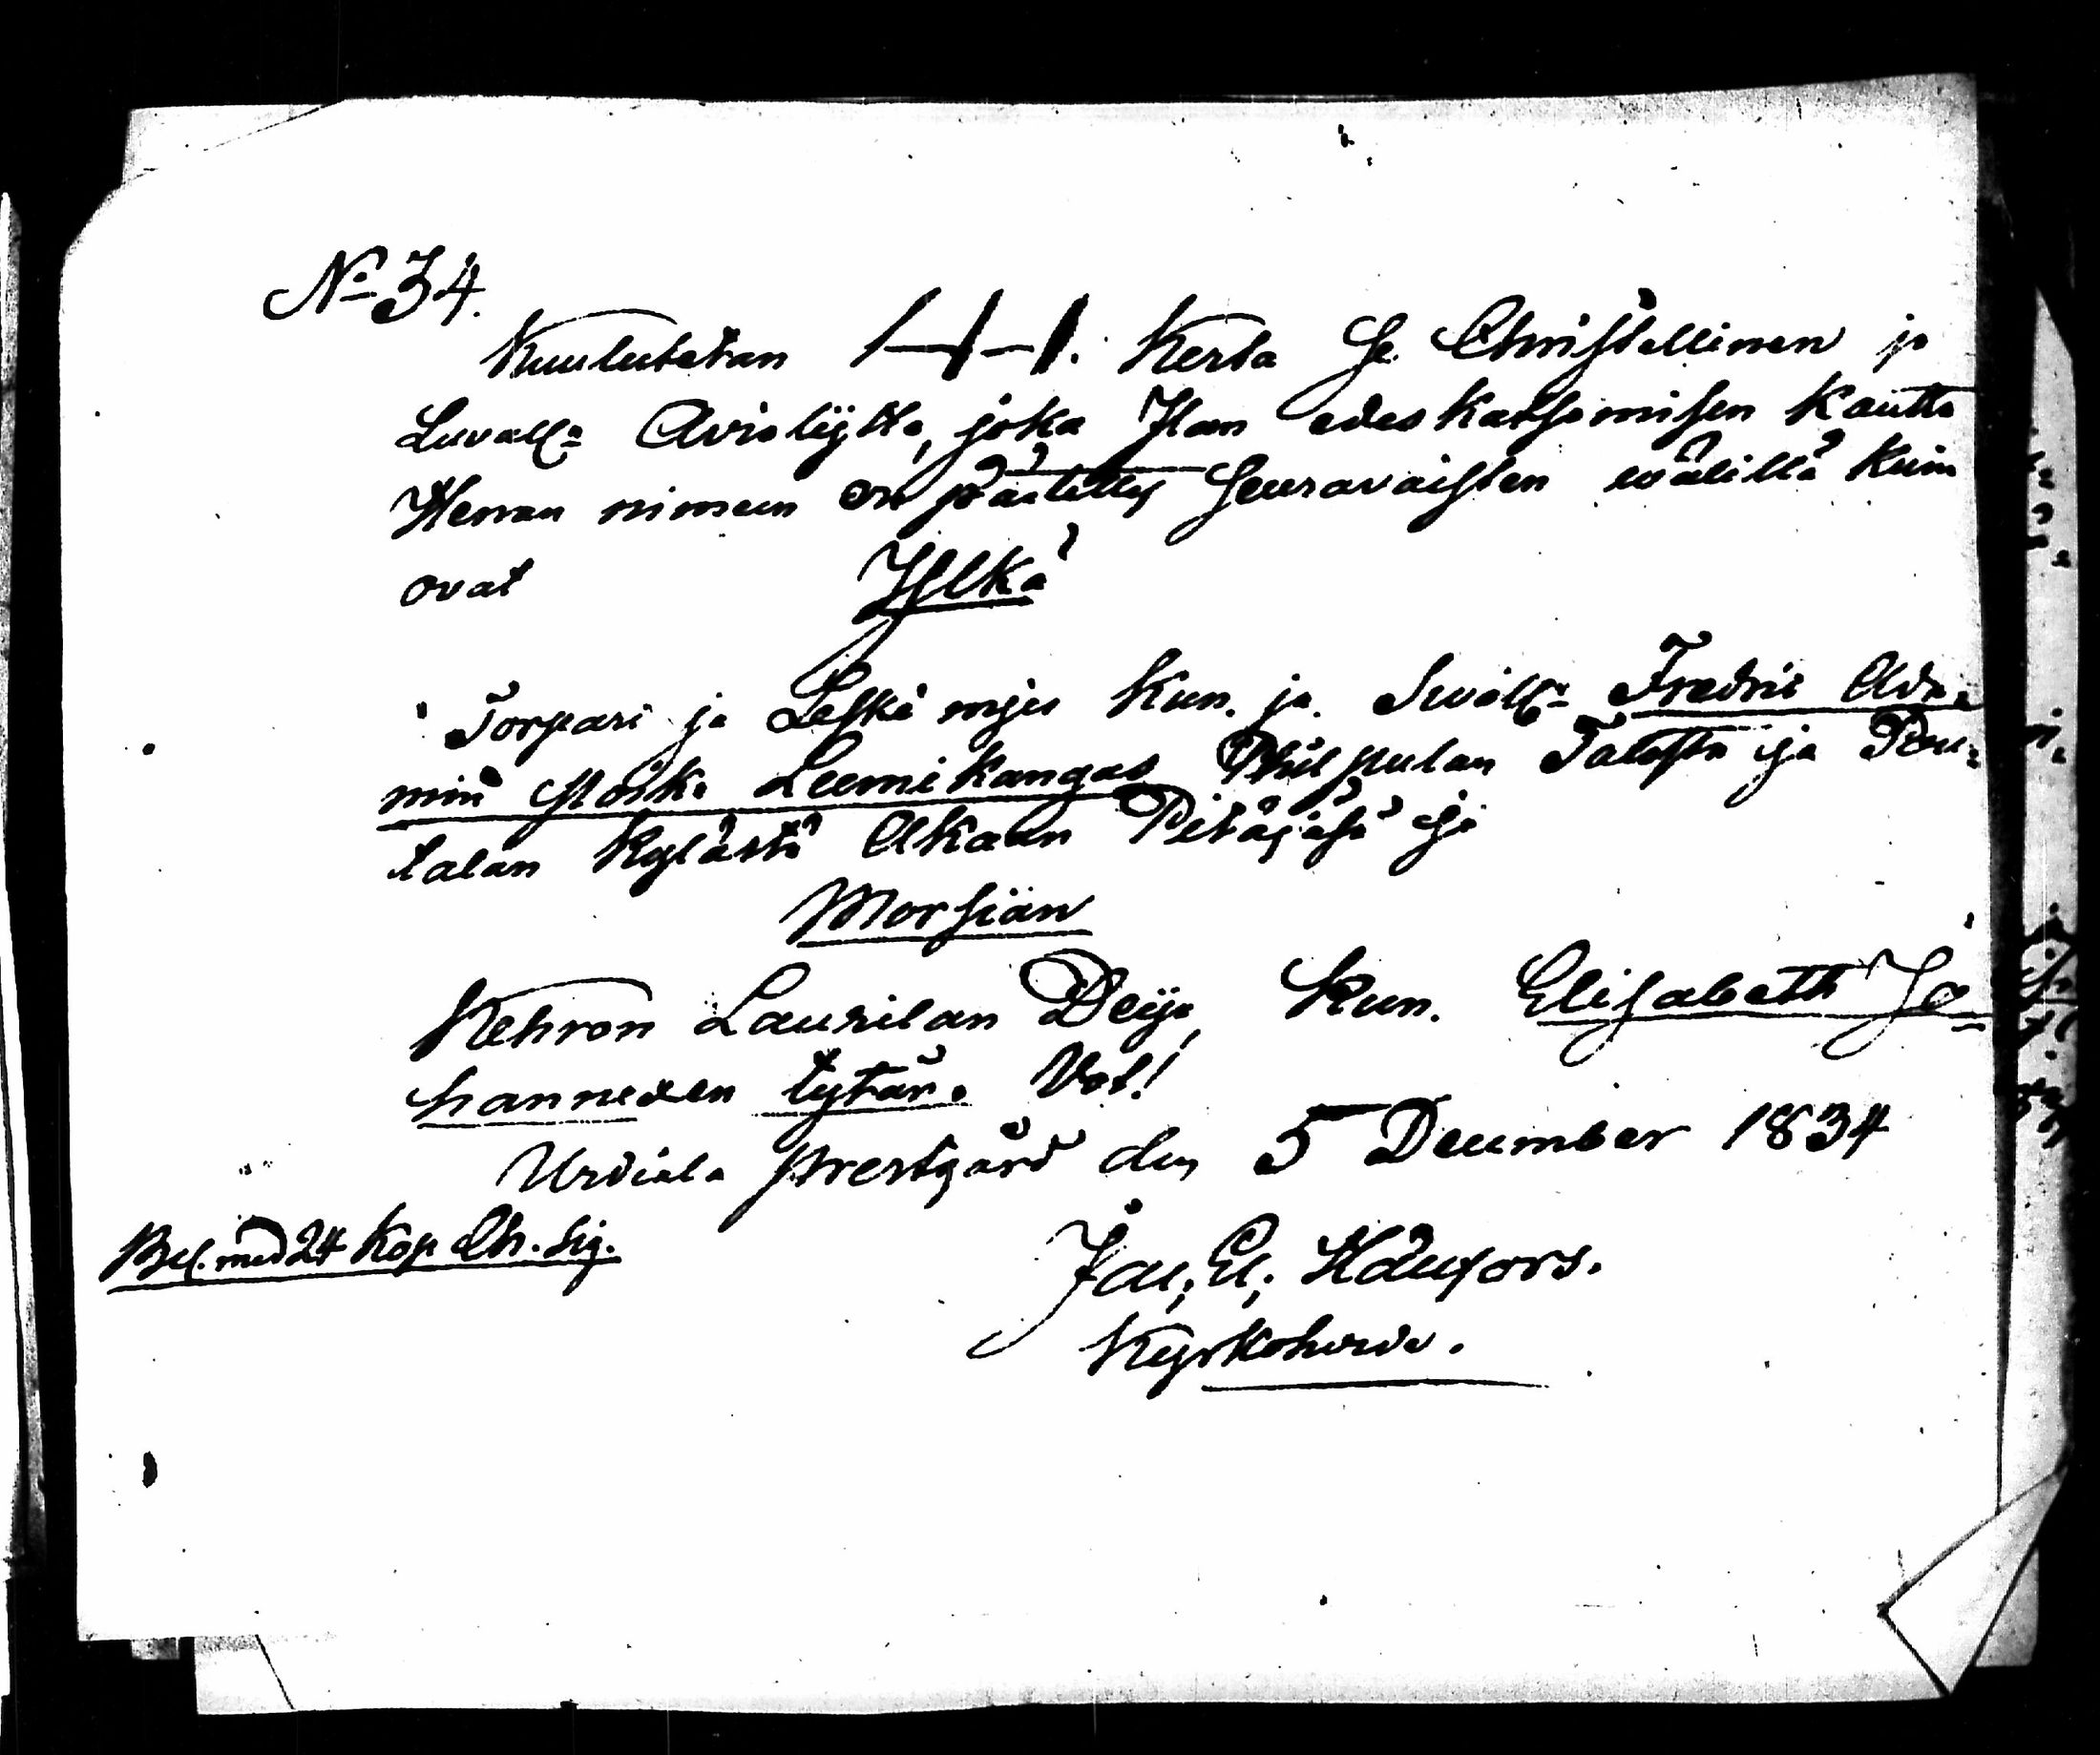 No 34.
Kuulutetan 1-1-1. Kerta Se Christellinen ja
Luvall: Aviokäytös, joka Ilon edeskatsomisen kautta
Herran nimeen on päätetty Seuravaisten wälillä kuin
ovat Ylkä
Torpari ja Leski mjes Kun. ja Siväll: Fredric Ada:
min Poik. Leemikangas Philpulan Talosta ja Pou:
talan Kylästä Akaan Pitäjäsä ja
Morsian
Kehron Laurilan Deija Kun. Elisabeth Jo-
hannexen tytär. Vot!
Urdiala Prestgård den 5 December 1834
Bel. med 24 Kop Ch. Sig.
Kyrkoherde.